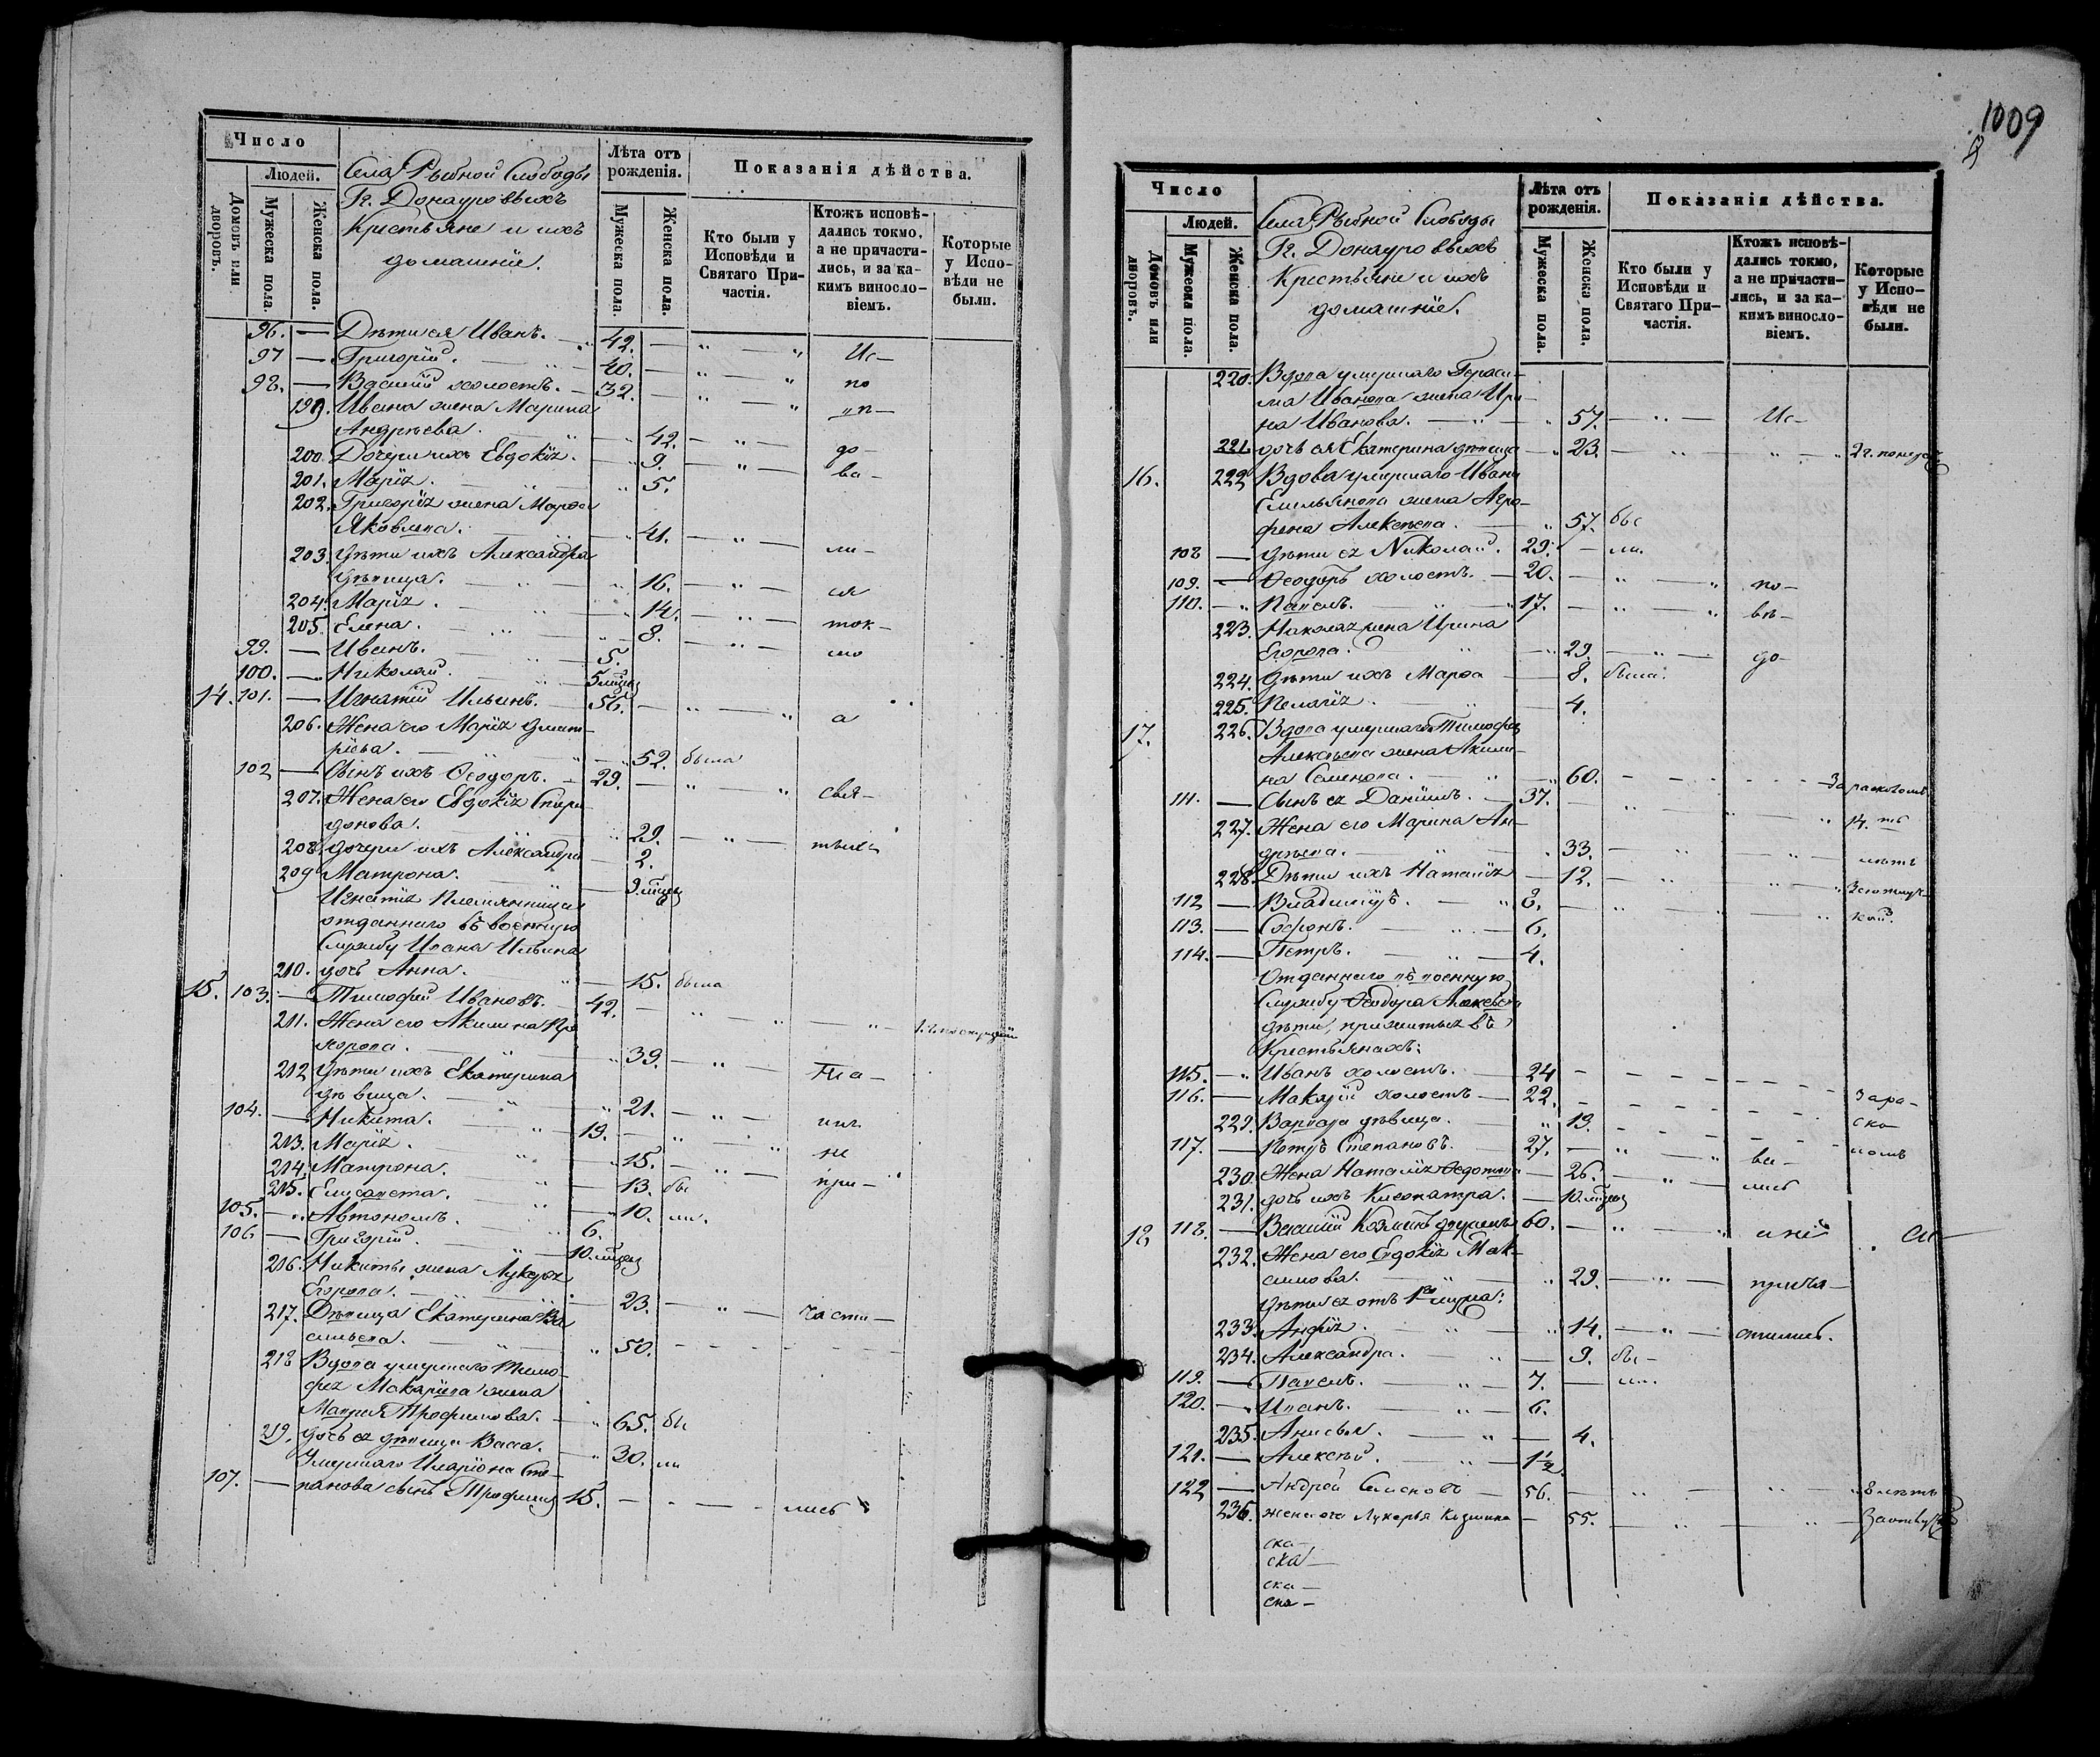 Число
Людей.
Домовъ или дворовъ.
Мужеска пола.
Женска пола.
Села Рыбной Слободы
Гг. Донауровыхъ
Крестьяне и ихъ
домашніе.
Лѣта отъ рожденія.
Мужеска пола.
Женска пола.
Показанія дѣйства.
Кто были у Исповѣди и Святаго Причастія.
Ктожъ исповѣдались токмо, а не причастились, и за какимъ винословіемъ.
Которые у Исповѣди не были.
96. — Дѣти ея Иванъ. 42. Ис-
97 — Григорій. 40. по
98. — Василій холостъ. 32.
199. Ивана жена Марина
Андреева. 42. до-
200. Дочери ихъ Евдокія. 9. ва-
201. Марія. 5.
202. Григорія жена Марѳа
Яковлева. 41. ли-
203. Дѣти ихъ Александра
дѣвица. 16. ся
204. Марія. 14. ток-
205. Елена. 8. мо
99. — Иванъ. 5.
100. — Николай. 5 мѣсяц
14. 101. — Игнатій Ильинъ. 56. а
206. Жена его Марія Дмит-
ріева. 52. была
102 — Сынъ ихъ Ѳеодоръ. 29. свя-
207. Жена его Евдокія Спири-
донова. 29.
208. дочери ихъ Александра 2.
209 Матрона. 9 мѣсяц
Игнатія племянница
отданнаго въ военную
службу Ивана Ильина
210. дочь Анна. 15. была
15. 103. — Тимофей Ивановъ. 42.
211. Жена его Акилина
39.
212 Дѣти ихъ Екатерина
дѣвица. 21.
104. — Никита. 19. не
213. Марія. 15. при-
214. Матрона. 13. бы
215. Елисавета. 10. ли.
105. — Автономъ. 6.
106 — Григорій. 10. мѣсяц
216. Никиты жена Лукерья
Егорова. 23. части-
217. Дѣвица Екатерина Ва
сильева. 50.
218 Вдова умершаго Тимо-
фея Макарьева жена
Марія Трофимова. 65. бы
219. дочь ея дѣвица Васса. 30. ли
Умершаго Иларіона Сте-
107. — панова сынъ Трофимъ 15. лись
1009
Число
Людей.
Домовъ или дворовъ.
Мужеска пола.
Женска пола.
Села Рыбной Слободы
Гг. Донауровыхъ
Крестьяне и ихъ
домашніе.
Лѣта отъ рожденія.
Мужеска пола.
Женска пола.
Показанія дѣйства.
Кто были у Исповѣди и Святаго Причастія.
Ктожъ исповѣдались токмо, а не причастились, и за какимъ винословіемъ.
Которые у Исповѣди не были.
220. Вдова умершаго Гераси-
ма Иванова жена Ири-
на Иванова. 57. Ис-
221. дочь ея Екатерина дѣвица 23.
16. 222 Вдова умершаго Ивана
Емельянова жена Агра-
фена Алексѣева. 57. бы
108 — Дѣти ея Николай. 29. ли.
109. — Ѳеодоръ холостъ. 20. по-
110. — Павелъ. 17. вѣ-
223. Николая жена Ирина
Егорова. 29. до-
224. Дѣти ихъ Марѳа 8. были.
225. Пелагія. 4.
17. 226. Вдова умершаго Тимофея
Алексѣева жена Акили-
на Семенова. 60. За расколомъ
111. — Сынъ ея Даніилъ. 37. 14. ть
227. Жена его Марина Ан-
дреева. 33. лѣтъ
228. Дѣти ихъ Наталія 12.
112 — Владиміръ. 8.
113. — Софонъ. 6.
114. — Петръ. 4.
Отданнаго въ военную
службу Ѳеодора Алексѣева
дѣти, прижитыя въ
Крестьянахъ:
115. — Иванъ холостъ. 24
116. — Макарій холостъ 22. За ра-
229. Варвара дѣвица. 19. ско-
117. — Петръ Степановъ. 27. ломъ
230. Жена Наталія Ѳедотова 26. лись
231. дочь ихъ Клеопатра. 10. мѣсяц
18 118. — Василій Козминъ 60. а не
232. Жена его Евдокія Мак-
симова. 29. прича-
Дѣти ея отъ 1го мужа:
233. Анфія. 14. стились.
234. Александра. 9. бы-
119. — Павелъ. 7. ли.
120. — Иванъ. 6.
235. Анисья. 4.
121. — Алексѣй. 1½
122 — Андрей Семеновъ 56. 8 лѣтъ
236. жена его Лукерья Козмина 55.
ска-
ска-
ска-
ска-